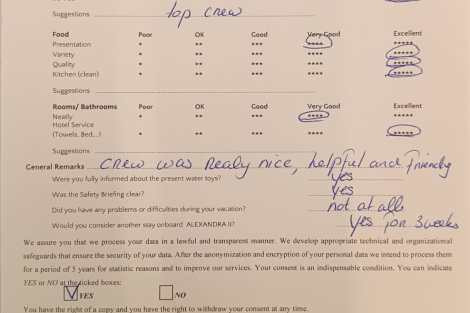 Suggestions top crew
Food Poor OK Good Very Good Excellent
Presentation * ** *** **** *****
Variety * ** *** **** *****
Quality * ** *** **** *****
Kitchen (clean) * ** *** **** *****
Suggestions
Rooms/ Bathrooms Poor OK Good Very Good Excellent
Neatly * ** *** **** *****
Hotel Service
(Towels, Bed...) * ** *** **** *****
Suggestions
General Remarks crew was realy nice, helpful and friendly
Were you fully informed about the present water toys? yes
Was the Safety Briefing clear? yes
Did you have any problems or difficulties during your vacation? not at all
Would you consider another stay onboard ALEXANDRA II? yes for 3 weeks
We assure you that we process your data in a lawful and transparent manner. We develop appropriate technical and organizational
safeguards that ensure the security of your data. After the anonymization and encryption of your personal data we intend to process them
for a period of 5 years for statistic reasons and to improve our services. Your consent is an indispensable condition. You can indicate
YES or NO at the ticked boxes:
YES NO
You have the right of a copy and you have the right to withdraw your consent at any time.